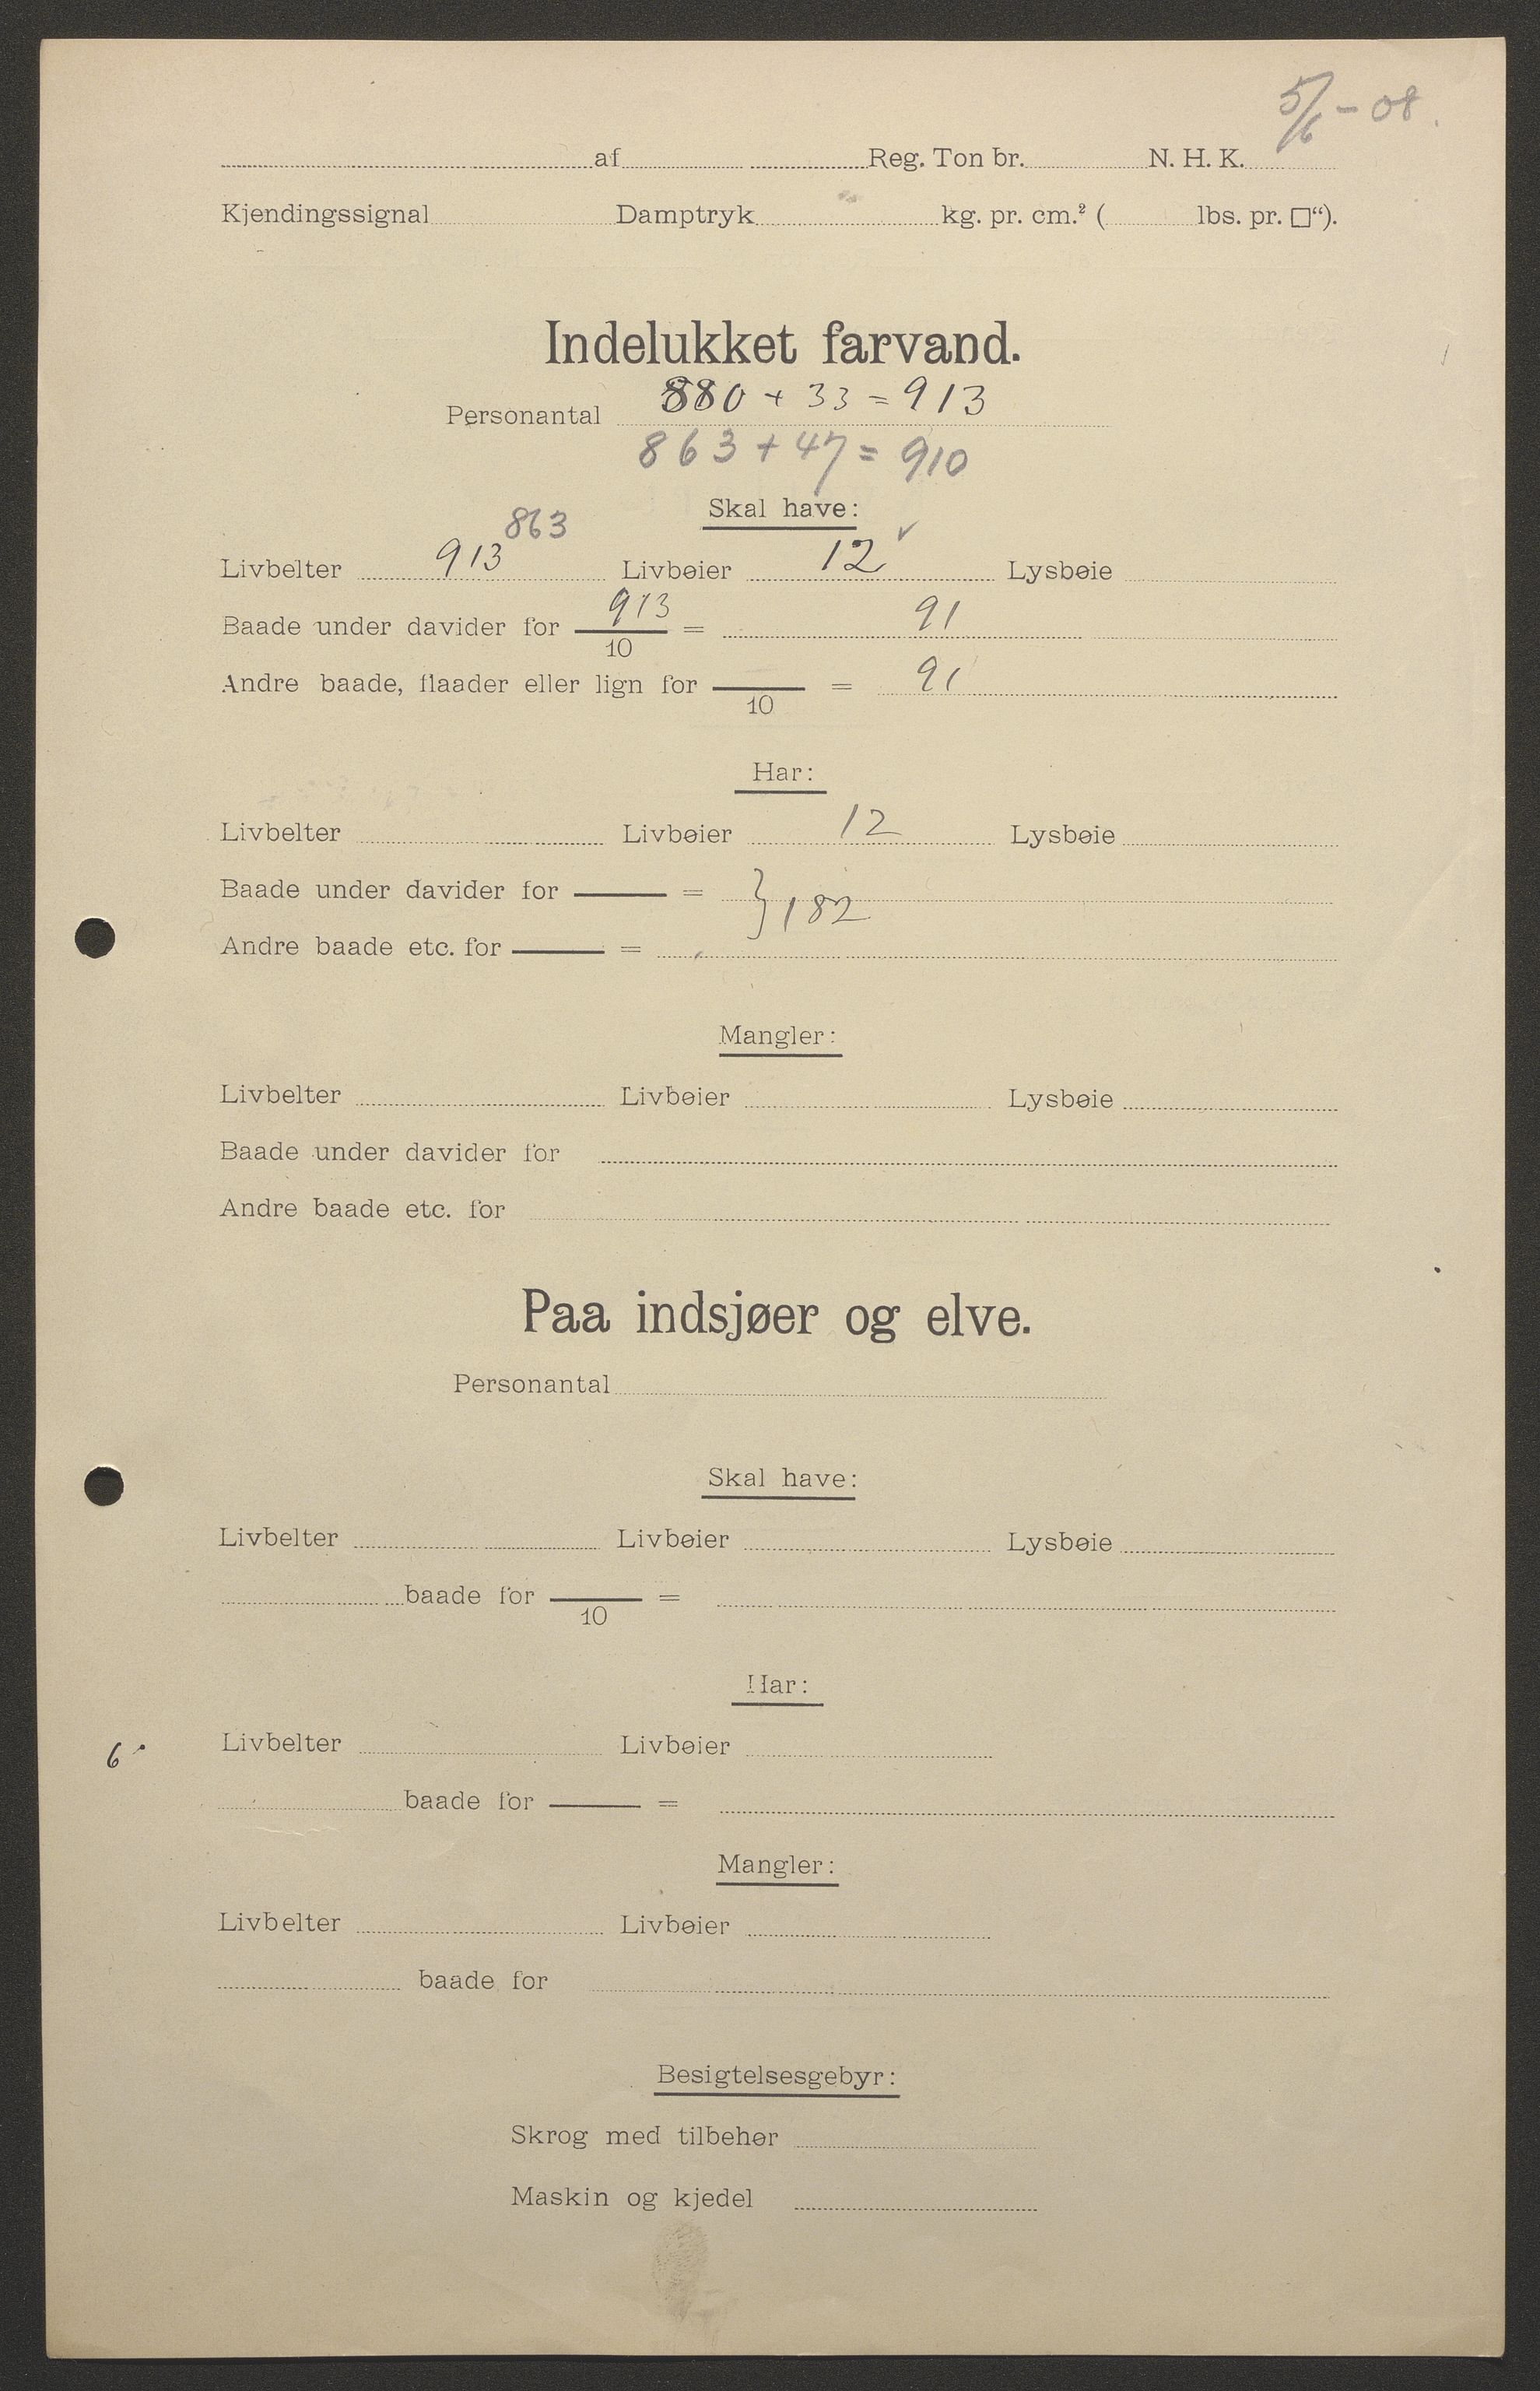 5/6 - 08.
af Reg. Ton br. N. H. K.
Kjendingssignal Damptryk kg. pr. cm.² ( lbs. pr. □“).
Indelukket farvand.
Personantal 880 + 33 = 913
863 + 47 = 910
Skal have:
863
Livbelter 913 Livbøier 12 ✓ Lysbøie
Baade under davider for 913/10 = 91
Andre baade, flaader eller lign for /10 = 91
Har:
Livbelter Livbøier 12 Lysbøie
Baade under davider for = } 182
Andre baade etc. for =
Mangler:
Livbelter Livbøier Lysbøie
Baade under davider for
Andre baade etc. for
Paa indsjøer og elve.
Personantal
Skal have:
Livbelter Livbøier Lysbøie
baade for /10 =
Har:
6 Livbelter Livbøier
baade for =
Mangler:
Livbelter Livbøier
baade for
Besigtelsesgebyr:
Skrog med tilbehør
Maskin og kjedel